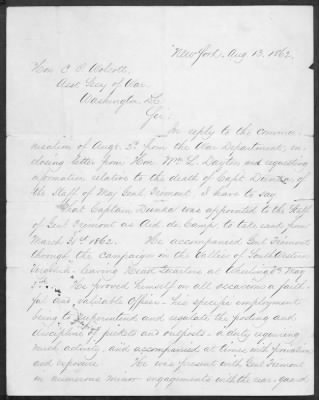 New York, Aug 13. 1862.
Hon. C. P. Wolcott,
Asst Secy of War.
Washington D.C.
Sir;
In reply to the commu-
nication of Augt. 5th from the War Department, in-
closing letter from Hon. Wm. L. Dayton, and requesting
information relative to the death of Capt. Dunka of
the Staff of Maj Genl Fremont, I have to say
That Captain Dunka was appointed to the Staff
of Genl Fremont as Aid de Camp, to take rank from
March 31st 1862. He accompanied Genl Fremont
through the Campaign in the Valley of
Virginia leaving Head Quarters at Wheeling Va May
5th. He proved himself on all occasions a faith-
ful and valuable officer. His specific employment
being to superintend and regulate the posting and
discipline of pickets and outposts - a duty requiring
much activity, and accompanied at times with privation
and exposure. He was present with Genl Fremont
in numerous minor engagements with the rear-guard